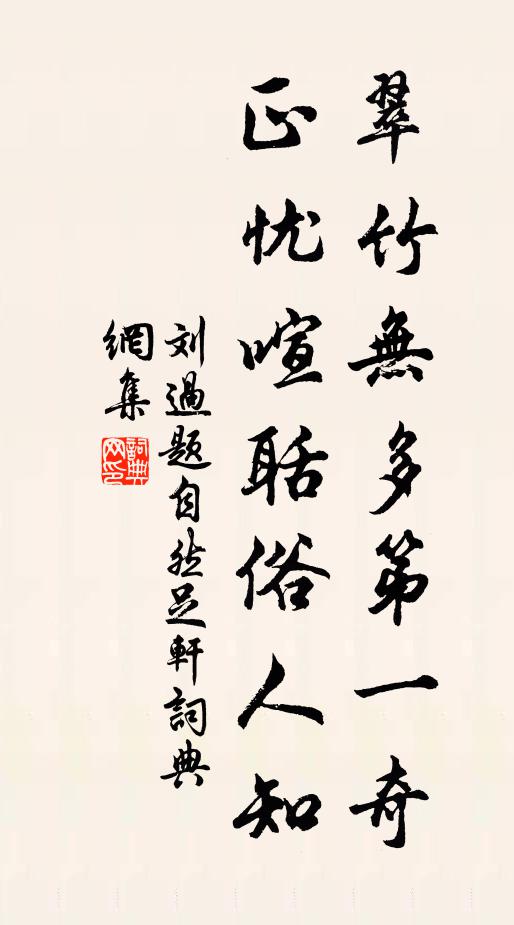 翠竹無多第一奇
正忧喧聒俗人知
刘過题自然足軒詞典
網集
詞典
网印